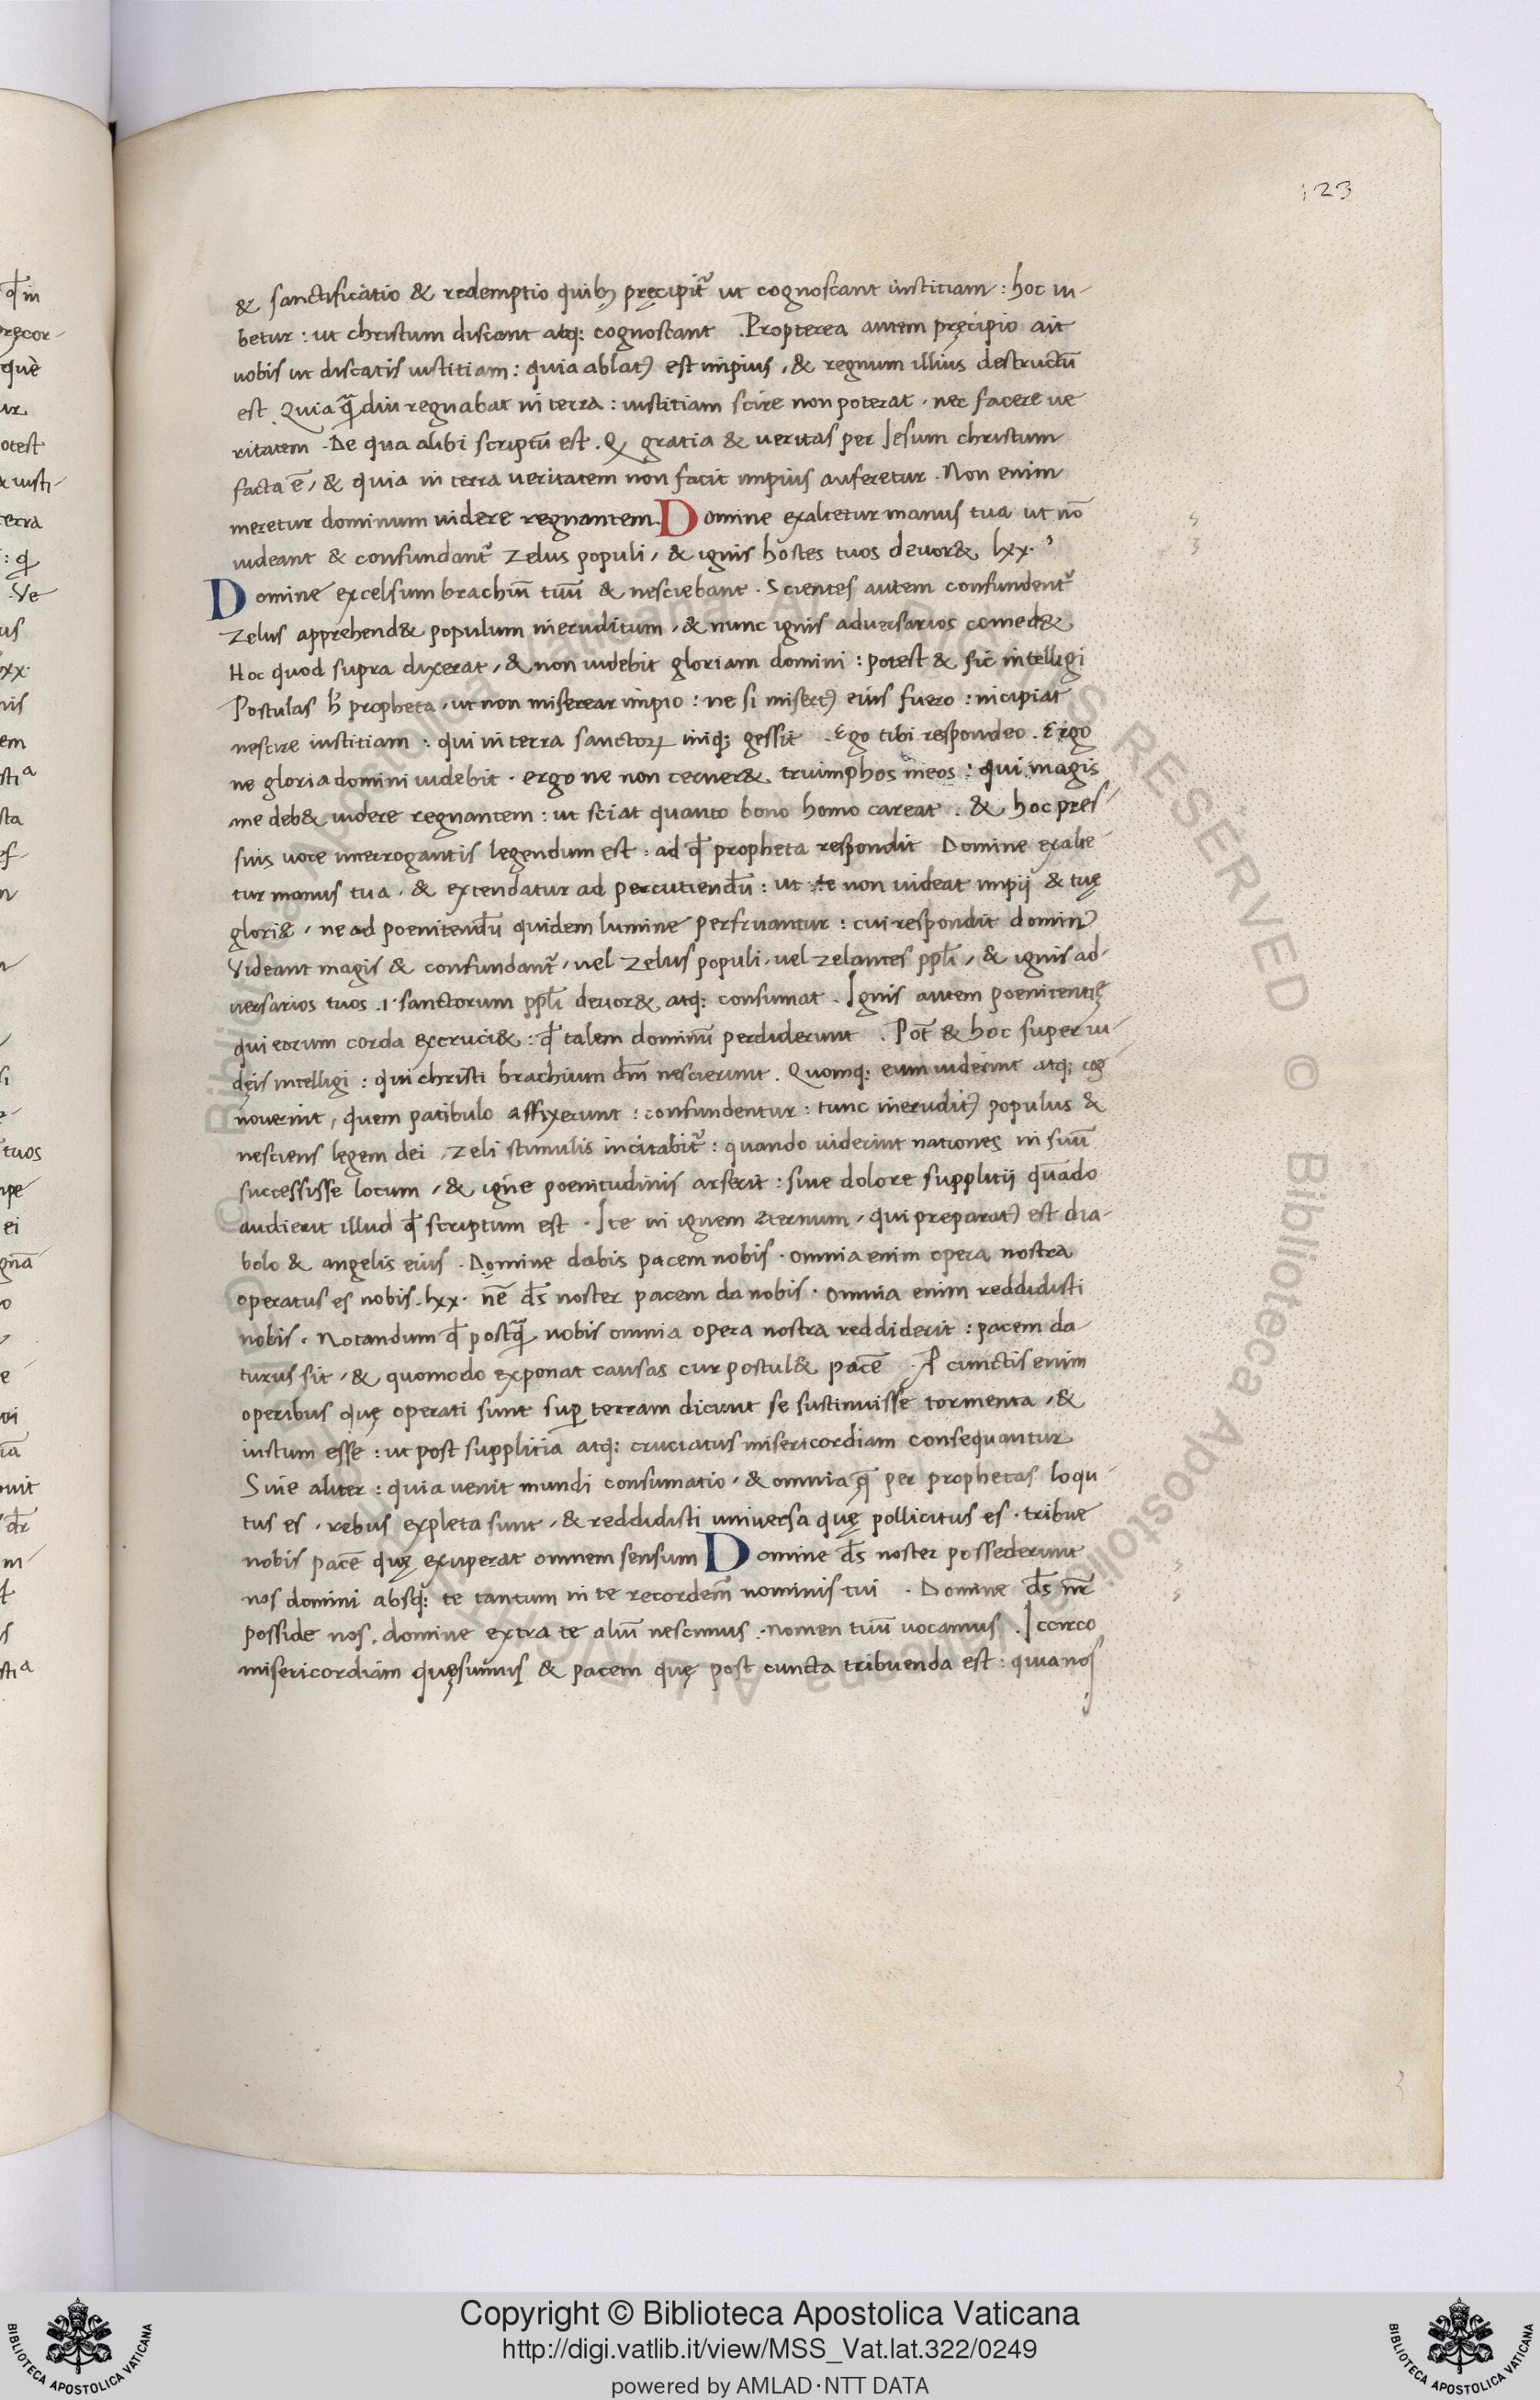 123
& sanctificatio & redemptio quibꝫ pręcipit᷑ ut cognoscant iustitiam : hoc iu-
betur : ut christum discant atq; cognoscant . Propterea autem pręcipio ait
uobis ut discatis iustitiam : quia ablatꝰ est impius , & regnum illius destructū
est . Quia q̄ diu regnabat in terra : iustitiam scire non poterat . nec facere ue
ritatem . De qua alibi scriptū est . Q gratia & ueritas per Iesum christum
facta ē , & quia in terra ueritatem non facit impius auferetur . Non enim
meretur dominum uidere regnantem . Domine exaltetur manus tua ut nō
uideant & confundant᷑ zelus populi , & ignis hostes tuos deuor& lxx .
Domine excelsum brachiū tuū & nesciebant . Scientes autem confundent᷑
Zelus apprehend& populum ineruditum , & nunc ignis aduersarios comed&
Hoc quod supra dixerat , & non uidebit gloriam domini : potest & sic intelligi
Postulas h̓ propheta , ut non miserear impio : ne si misertꝰ eius fuero : incipiat
nescire iustitiam : qui in terra sanctoꝝ iniq; gessit . Ego tibi respondeo . Ergo
ne gloria domini uidebit . ergo ne non cerner& truimphos meos : qui magis
me deb& uidere regnantem : ut sciat quanto bono homo careat . & hoc pres-
suis uoce interrogantis legendum est : ad qđ propheta respondit Domine exalte-
tur manus tua . & extendatur ad percutiendū : ut te non uideat impij & tuę
glori& , ne ad poenitendū quidem lumine perfruantur : cui respondit dominꝰ
Videant magis & confundant᷑ , uel zelus populi , uel zelantes ppłi , & ignis ad-
uersarios tuos .i. sanctorum ppłi deuor& atq; consumat . Ignis autem poenitentię
qui eorum corda excruci& : qđ talem dominū perdiderunt . Pot̄ & hoc super iu-
dęis intelligi : qui christi brachium dm̄ nescierunt . Quomq; eum uiderint atq; cog-
nouerint , quem patibulo affixerunt : confundentur : tunc ineruditꝰ populus &
nesciens legem dei , zeli stimulis incitabit᷑ : quando uiderint nationes in suū
successisse locum , & igne poenitudinis arserit : siue dolore supplitij quādo
audierit illud qđ scriptum est . Ite in ignem æternum , qui preparatꝰ est dia-
bolo & angelis eius . Domine dabis pacem nobis . omnia enim opera nostra
operatus es nobis . lxx . nē ds̄ noster pacem da nobis . omnia enim reddidisti
nobis . Notandum qđ postq̄ nobis omnia opera nostra reddiderit : pacem da-
turus sit , & quomodo exponat causas cur postul& pacē . P̄ cunctis enim
operibus quę operati sunt suꝑ terram dicunt se sustinuisse tormenta , &
iustum esse : ut post supplitia atq; cruciatus misericordiam consequantur
Siue aliter : quia uenit mundi consumatio , & omnia q̄ per prophetas loqu-
tus es , rebus expleta sunt , & reddidisti uniuersa quę pollicitus es . tribue
nobis pacē quę exuperat omnem sensum Domine ds̄ noster possederunt
nos domini absq; te tantum in te recordem᷑ nominis tui . Domine ds̄ nr̄
posside nos . domine extra te aliū nescimus . nomen tuū uocamus . Iccirco
misericordiam quęsumus & pacem quę post cuncta tribuenda est : quia nos
Copyright © Biblioteca Apostolica Vaticana
http://digi.vatlib.it/view/MSS_Vat.lat.322/0249
powered by AMLAD·NTT DATA